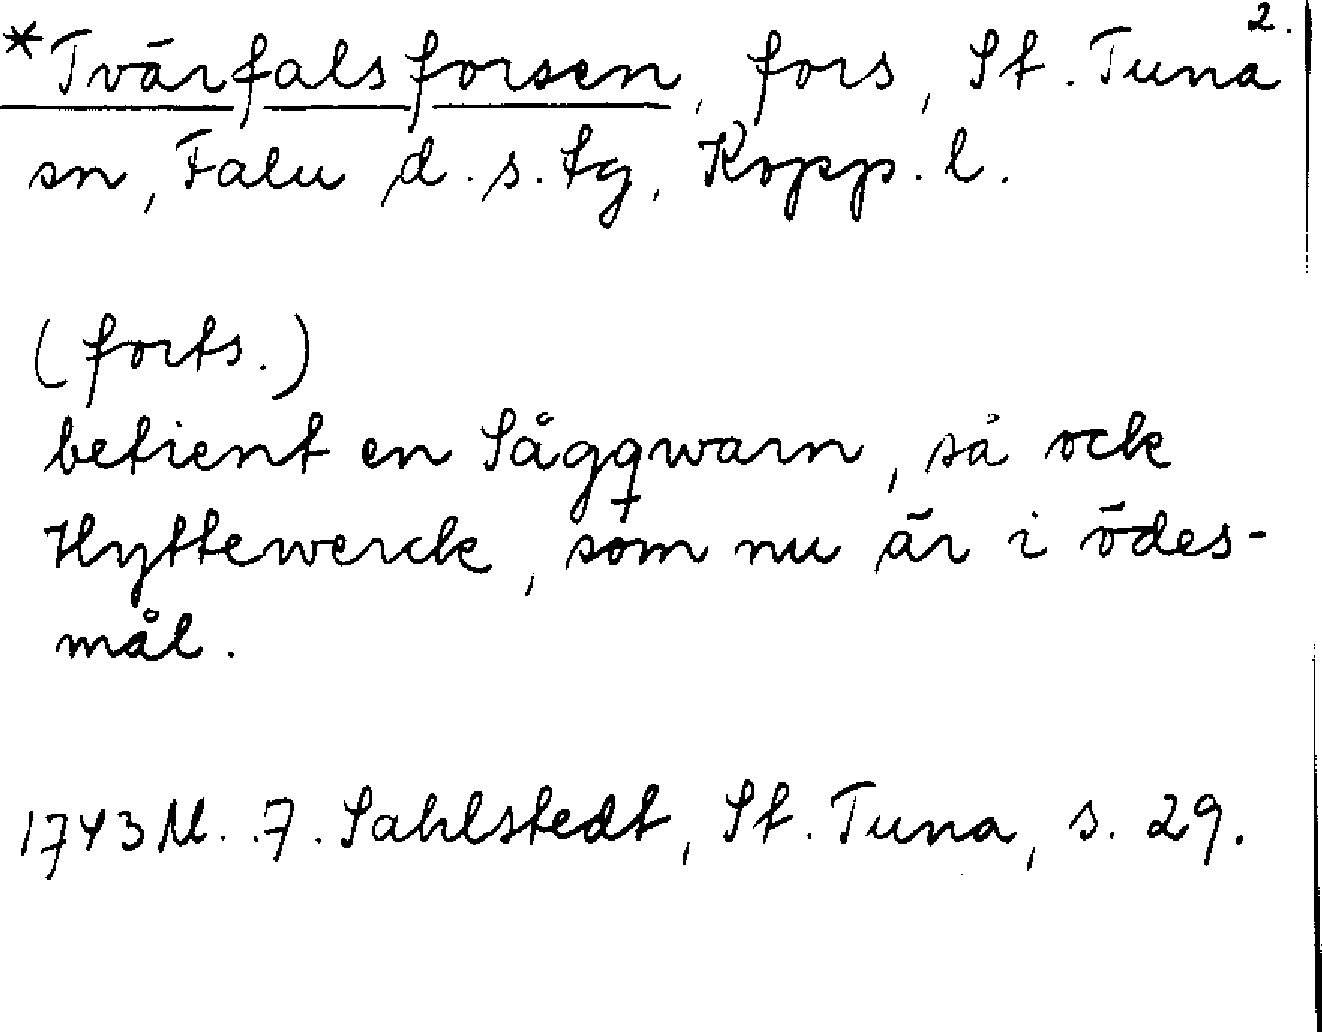 2.
*Tvärfalsforsen, fors, St. Tuna
sn, Falu d.s. tg, Kopp. l.
(forts.)
betient en Sågqwarn, så ock
Hyttewerck, som nu är i ödes-
mål.
1743 M. F. Sahlstedt, St. Tuna, s. 29.